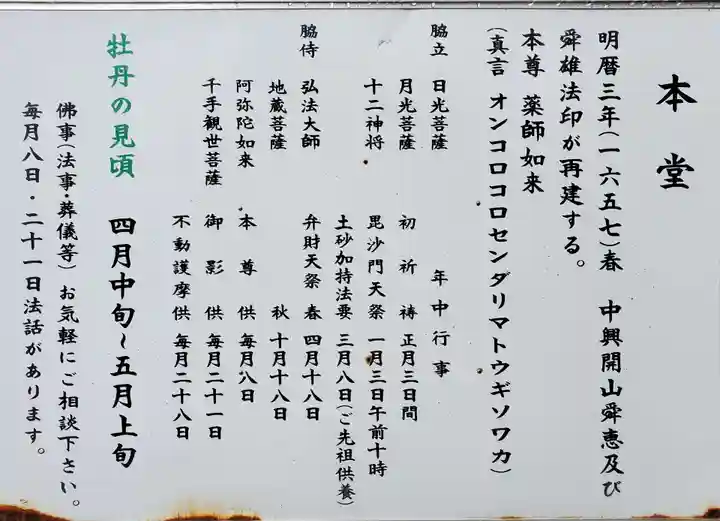 本堂
明暦三年(一六五七)春 中興開山舜恵及び
舜雄法印が再建する。
本尊 薬師如来
(真言 オンコロコロセンダリマトウギソワカ)
脇立 日光菩薩
月光菩薩
十二神将
脇侍 弘法大師
地蔵菩薩
阿弥陀如来
千手観世菩薩
年中行事
初祈祷 正月三日間
毘沙門天祭 一月三日午前十時
土砂加持法要 三月八日(ご先祖供養)
弁財天祭 春 四月十八日
秋 十月十八日
本尊供 毎月八日
御影供 毎月二十一日
不動護摩供 毎月二十八日
牡丹の見頃 四月中旬~五月上旬
佛事(法事・葬儀等) お気軽にご相談下さい。
毎月八日・二十一日法話があります。